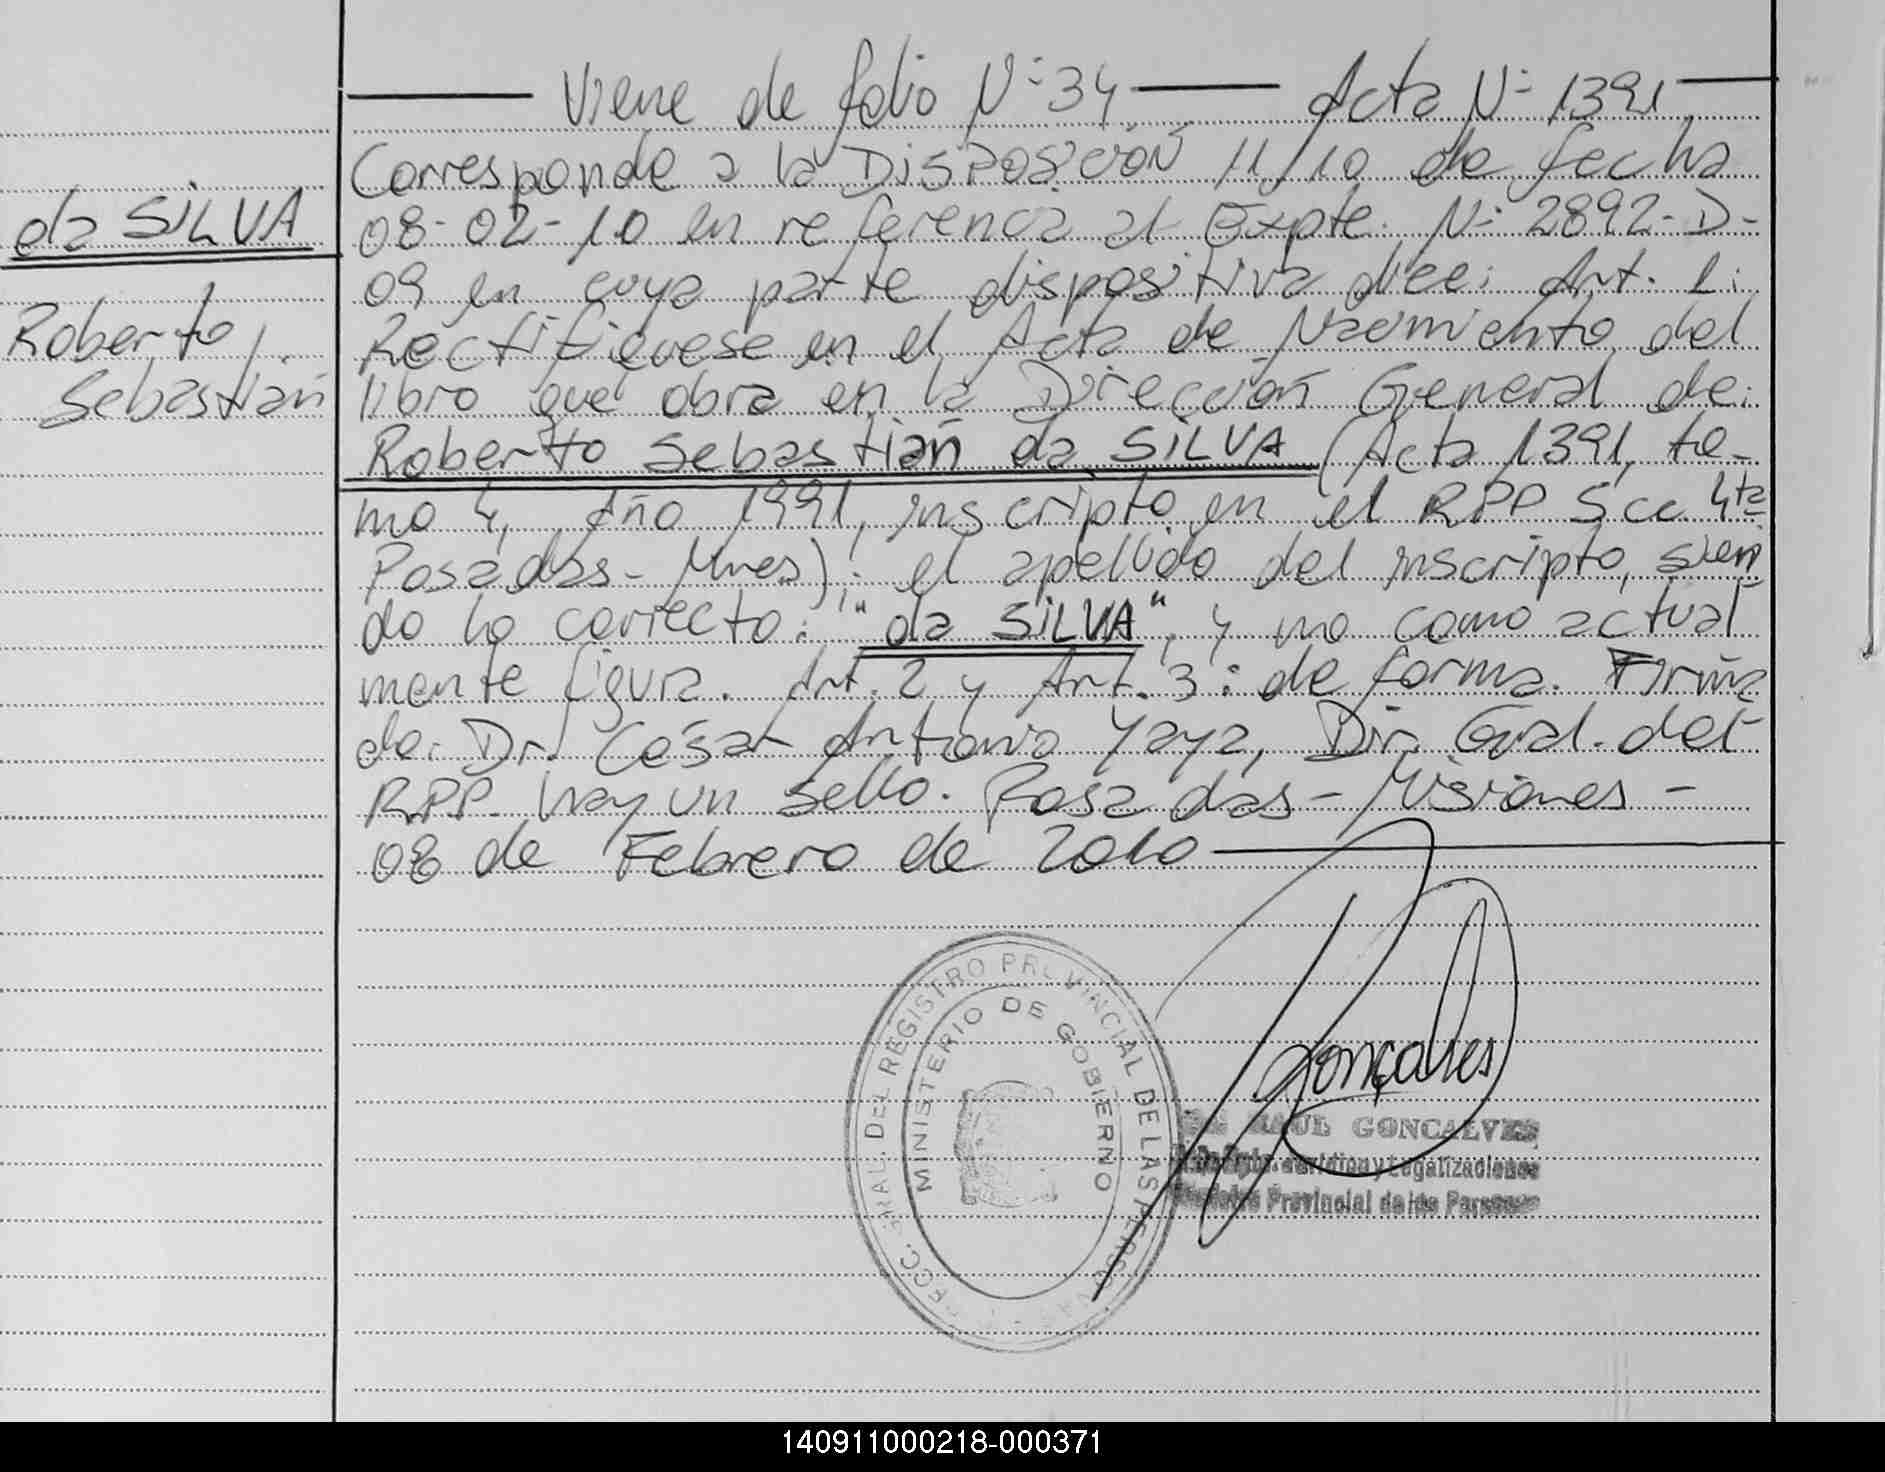 Viene de folio Nº 34 Acta Nº 1391
Corresponde a la DISPOSICIÓN 11/10 de fecha
08-02-10 en referencia al Expte. Nº 2892-D-
09 en cuya parte dispositiva dice: Art. 1:
Rectifiquese en el Acta de Nacimiento del
libro que obra en la Dirección General de:
Roberto Sebastián da SILVA (Acta 1391, to-
mo 4, Año 1991, inscripto en el RPP Scc 4ta
Posadas - Mnes); el apellido del inscripto, sien
do lo correcto: "da SILVA", y no como actual
mente figura. Art. 2 y Art. 3: de forma. Firma
do: Dr. César Antonio Yaya, Dir. Gral. del
RPP. hay un sello. Posadas - Misiones -
08 de Febrero de 2010
da SILVA
Roberto
Sebastián
GRAL. DEL REGISTRO PROVINCIAL DE LAS PERSONAS
MINISTERIO DE GOBIERNO
Gonçalves
RAUL GONCALVES
Jurídico y Legalizaciones
Provincial de las Personas
140911000218-000371